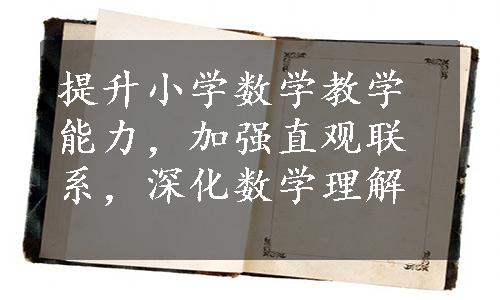 提升小学数学教学
能力，加强直观联
系，深化数学理解